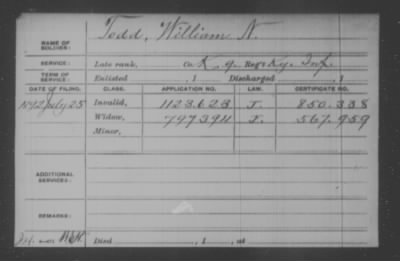 NAME OF SOLDIER: Todd, William N.
SERVICE: Late rank, Co. K, 9. Reg't Ky. Inf.
TERM OF SERVICE: Enlisted , 1 Discharged , 1
DATE OF FILING. CLASS. APPLICATION NO. LAW. CERTIFICATE NO.
1892 July 25 Invalid, 1123.623 J. 850.338
Widow, 797394 I. 567.959
Minor,
ADDITIONAL SERVICES:
REMARKS:
Died , 1 , at